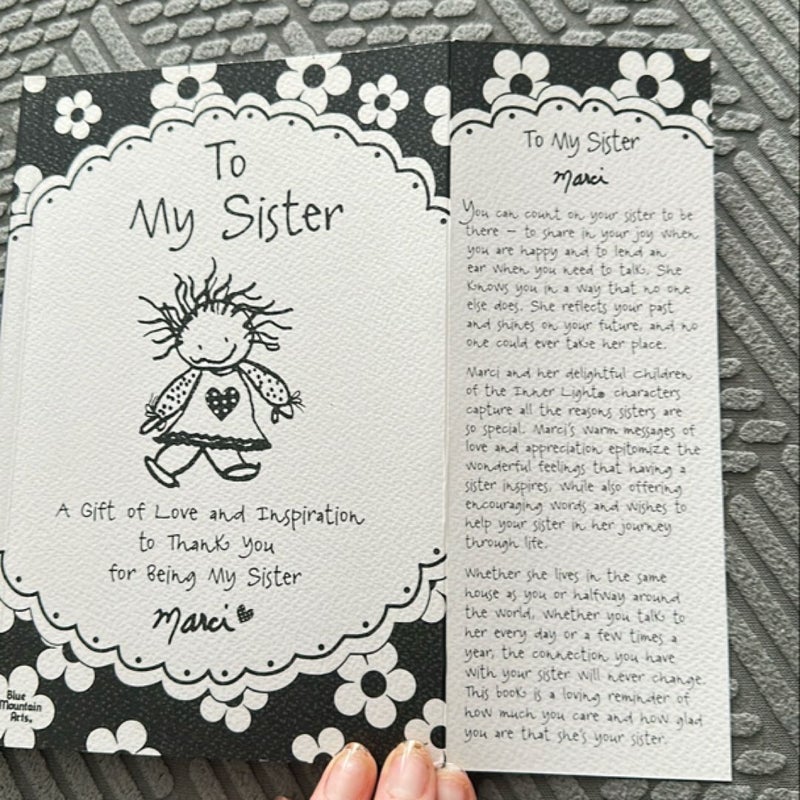 To
My Sister
A Gift of Love and Inspiration
to Thank You
for Being My Sister
Marci
Blue
Mountain
Arts®
To My Sister
Marci
You can count on your sister to be
there — to share in your joy when
you are happy and to lend an
ear when you need to talk. She
knows you in a way that no one
else does. She reflects your past
and shines on your future, and no
one could ever take her place.
Marci and her delightful Children
of the Inner Light® characters
capture all the reasons sisters are
so special. Marci's warm messages of
love and appreciation epitomize the
wonderful feelings that having a
sister inspires, while also offering
encouraging words and wishes to
help your sister in her journey
through life.
Whether she lives in the same
house as you or halfway around
the world, whether you talk to
her every day or a few times a
year, the connection you have
with your sister will never change.
This book is a loving reminder of
how much you care and how glad
you are that she's your sister.